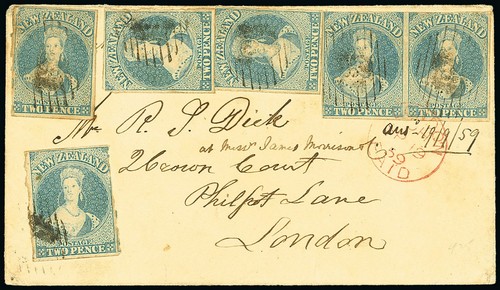 NEW ZEALAND
POSTAGE
TWO PENCE
NEW ZEALAND
POSTAGE
TWO PENCE
NEW ZEALAND
POSTAGE
TWO PENCE
NEW ZEALAND
POSTAGE
TWO PENCE
NEW ZEALAND
POSTAGE
TWO PENCE
Mr R. S. Dick
at Messrs James Morrison
2 Crown Court
Philpot Lane
London
/59
PAID
NEW ZEALAND
POSTAGE
TWO PENCE